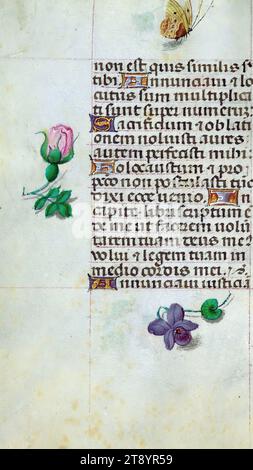 non est quis similis s
tibi Annunciavi & lo
cutus sum multiplica
ti sunt super numeruz
Sacrificium & oblati
onem noluisti aures
autem perfecisti mihi
Holocaustum & pro
peccato non postulasti tunc
dixi ecce venio In
capite libri scriptum e
de me ut facerem volun
tatem tuam deus me
volui & legem tuam in
medio cordis mei
Annunciavi iusticia
alamy
Image ID: 2T8YR59
www.alamy.com